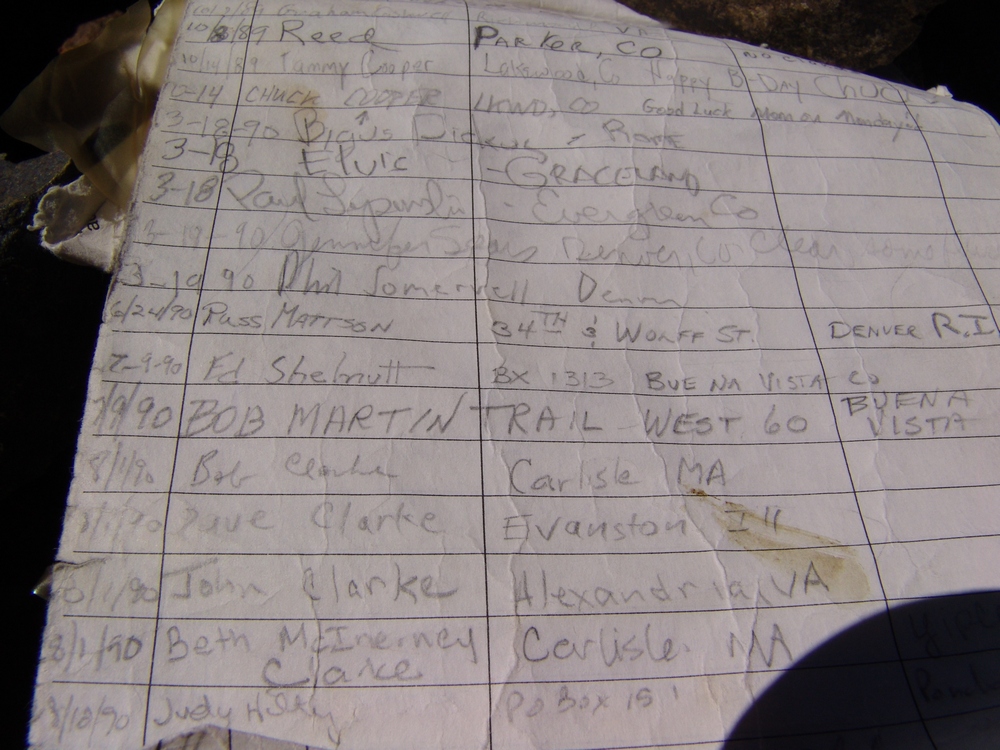 10/8/89 Reed PARKER, CO
10/14/89 Tammy Cooper Lakewood, Co Happy B-Day Chuck
10-14 CHUCK COOPER LKWD, CO Good Luck Mom on Monday!
3-18-90 Bigus Dickus - Rome
3-18 Elvis - GRACELAND
3-18 Paul - Evergreen Co
3-18-90 Jennifer Sears Denver, Co Clear,
3-19 90 Phil Somervell Denver
6/24/90 Russ MATTSON 34TH & WOLFF ST. DENVER
7-9-90 Ed Shelnutt BX 1313 BUENA VISTA CO
7/9/90 BOB MARTIN TRAIL WEST 60 BUENA VISTA
8/1/90 Bob Clarke Carlisle MA
8/1/90 Dave Clarke Evanston Ill
8/1/90 John Clarke Alexandria, VA
8/1/90 Beth McInerney Clarke Carlisle. MA
8/10/90 Judy PO Box 15